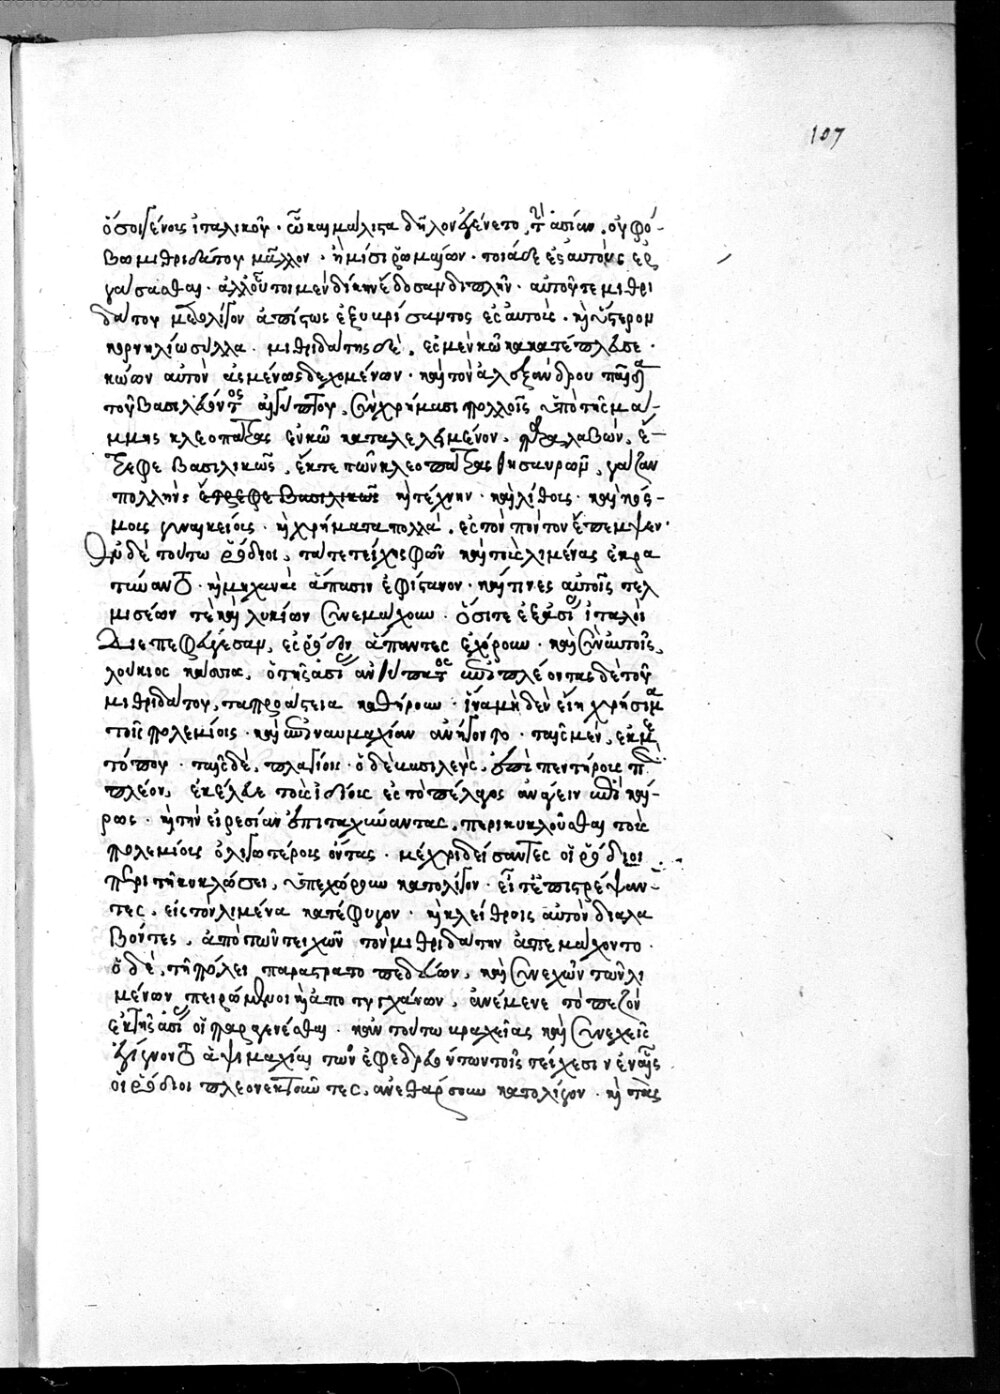 107
ὅσοι γένους ἰταλικοῦ · ᾧ καὶ μάλιστα δῆλον ἐγένετο, τὴν ἀσίαν, οὐ φό-
βω μιθριδάτου μᾶλλον · ἢ μίσει ῥωμαίων · τοιάδε ἐς αὐτοὺς ἐρ
γάσασθαι · ἀλλ' οὗτοι μὲν δίκην ἔδοσαν διπλῆν · αὐτοῦ τε μιθρι
δάτου μετ' ὀλίγον ἀπίστως ἐξυβρίσαντος ἐς αὐτούς · καὶ ὕστερον
κορνηλίω σύλλα · μιθριδάτης δὲ, ἐς μὲν κῶ κατέπλευσε ·
κώων αὐτὸν ἀσμένως δεχομένων · καὶ τὸν ἀλεξάνδρου παῖδα
τοῦ βασιλεύοντος αἰγύπτου, σὺν χρήμασι πολλοῖς ὑπὸ τῆς μά-
μμης κλεοπάτρας ἐν κῶ καταλελειμένον, παραλαβὼν, ἔ-
τρεφε βασιλικῶς, ἔκ τε τῶν κλεοπάτρας θησαυρῶν, γάζαν
πολλὴν ἔτρεφε βασιλικῶς καὶ τέχνην · καὶ λίθους · καὶ κόσ-
μους γυναικείους · καὶ χρήματα πολλὰ, ἐς τὸν πόντον ἔπεμψεν ·
Ἐν δὲ τούτω ῥόδιοι, τά τε τείχη σφῶν καὶ τοὺς λιμένας ἐκρα
τύναντο · καὶ μηχανὰς ἅπασιν ἐφίστανον · καί τινες αὐτοῖς τελ
μισέων τὲ καὶ λυκίων συνεμάχουν · ὅσοι τε ἐξ ἀσίας ἰταλοὶ
διεπεφεύγεσαν, ἐς ῥόδον ἅπαντες ἐχώρουν · καὶ σὺν αὐτοῖς,
λούκιος κάσσιος, ὁ τῆς ἀσίας ἀνθύπατος ἐπιπλέοντος δὲ τοῦ
μιθριδάτου, τὰ προάστεια καθήρουν · ἵνα μηδὲν εἴη χρήσιμα
τοῖς πολεμίοις · καὶ ἐπὶ ναυμαχίαν ἀνήγοντο · ταῖς μὲν, ἐκ με
τώπου · ταῖς δὲ, πλαγίοις · ὁ δὲ βασιλεὺς, ἐπὶ πεντήρους περι
πλέον, ἐκέλευε τοὺς ἰδίους ἐς τὸ πέλαγος ἀνάγειν ἐπὶ κέ-
ρως · καὶ τὴν εἰρεσίαν ἐπιταχύναντας, περικυκλοῦσθαι τοὺς
πολεμίους ὀλιγωτέρους ὄντας · μέχρι δείσαντες οἱ ῥόδιοι
περὶ τῇ κυκλώσει, ὑπεχώρουν κατ' ὀλίγον · εἶτ' ἐπιστρέψαν-
τες, εἰς τὸν λιμένα κατέφυγον · καὶ κλείθροις αὐτὸν διαλα
βόντες, ἀπὸ τῶν τειχῶν τὸν μιθριδάτην ἀπεμάχοντο ·
ὁ δὲ, τῇ πόλει παραστρατοπεδεύων, καὶ συνεχῶς τῶν λι
μένων πειρώμενος καὶ ἀποτυγχάνων, ἀνέμενε τὸ πεζὸν
ἐκ τῆς ἀσίας οἱ παραγενέσθαι · κἀν τούτω βραχείας καὶ συνεχεῖς
ἐγίγνοντο ἁψιμαχίαι τῶν ἐφεδρευόντων τοῖς τείχεσιν ἐν αἷς
οἱ ῥόδιοι πλεονεκτοῦντες, ἀνεθάρσουν κατ' ὀλίγον · καὶ τὰς